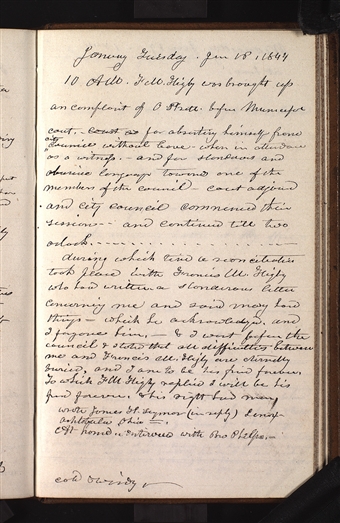 January Tuesday. Jan 16, 1844
10 A.M. F. M. Higby was brought up
on complaint of O Stout. before Municipal
court. for absenting himself from
city council without leave when in attendance
as a witness. and for slanderous and
abusive language towards one of the
members of the council court adjourned
and city council commenced their
session and continued till two
oclock.
during which time a reconciliation
took place with Francis M. Higby
who had written a slanderous letter
concerning me and said many hard
things which he acknowledged, and
I forgave him. & I went before the
council & stated that all difficulties between
me and Francis M. Higby were eternally
buried, and I am to be his friend forever.
To which F M. Higby replied I will be his
friend forever, & his right hand man
wrote James H. Seymor (in reply)
Ashtabula Ohio
At home. with Mr Phelps.
cold & windy